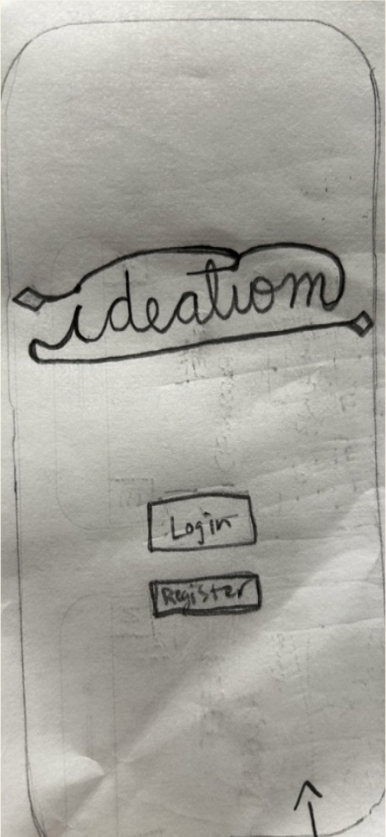 ideation
Login
Register